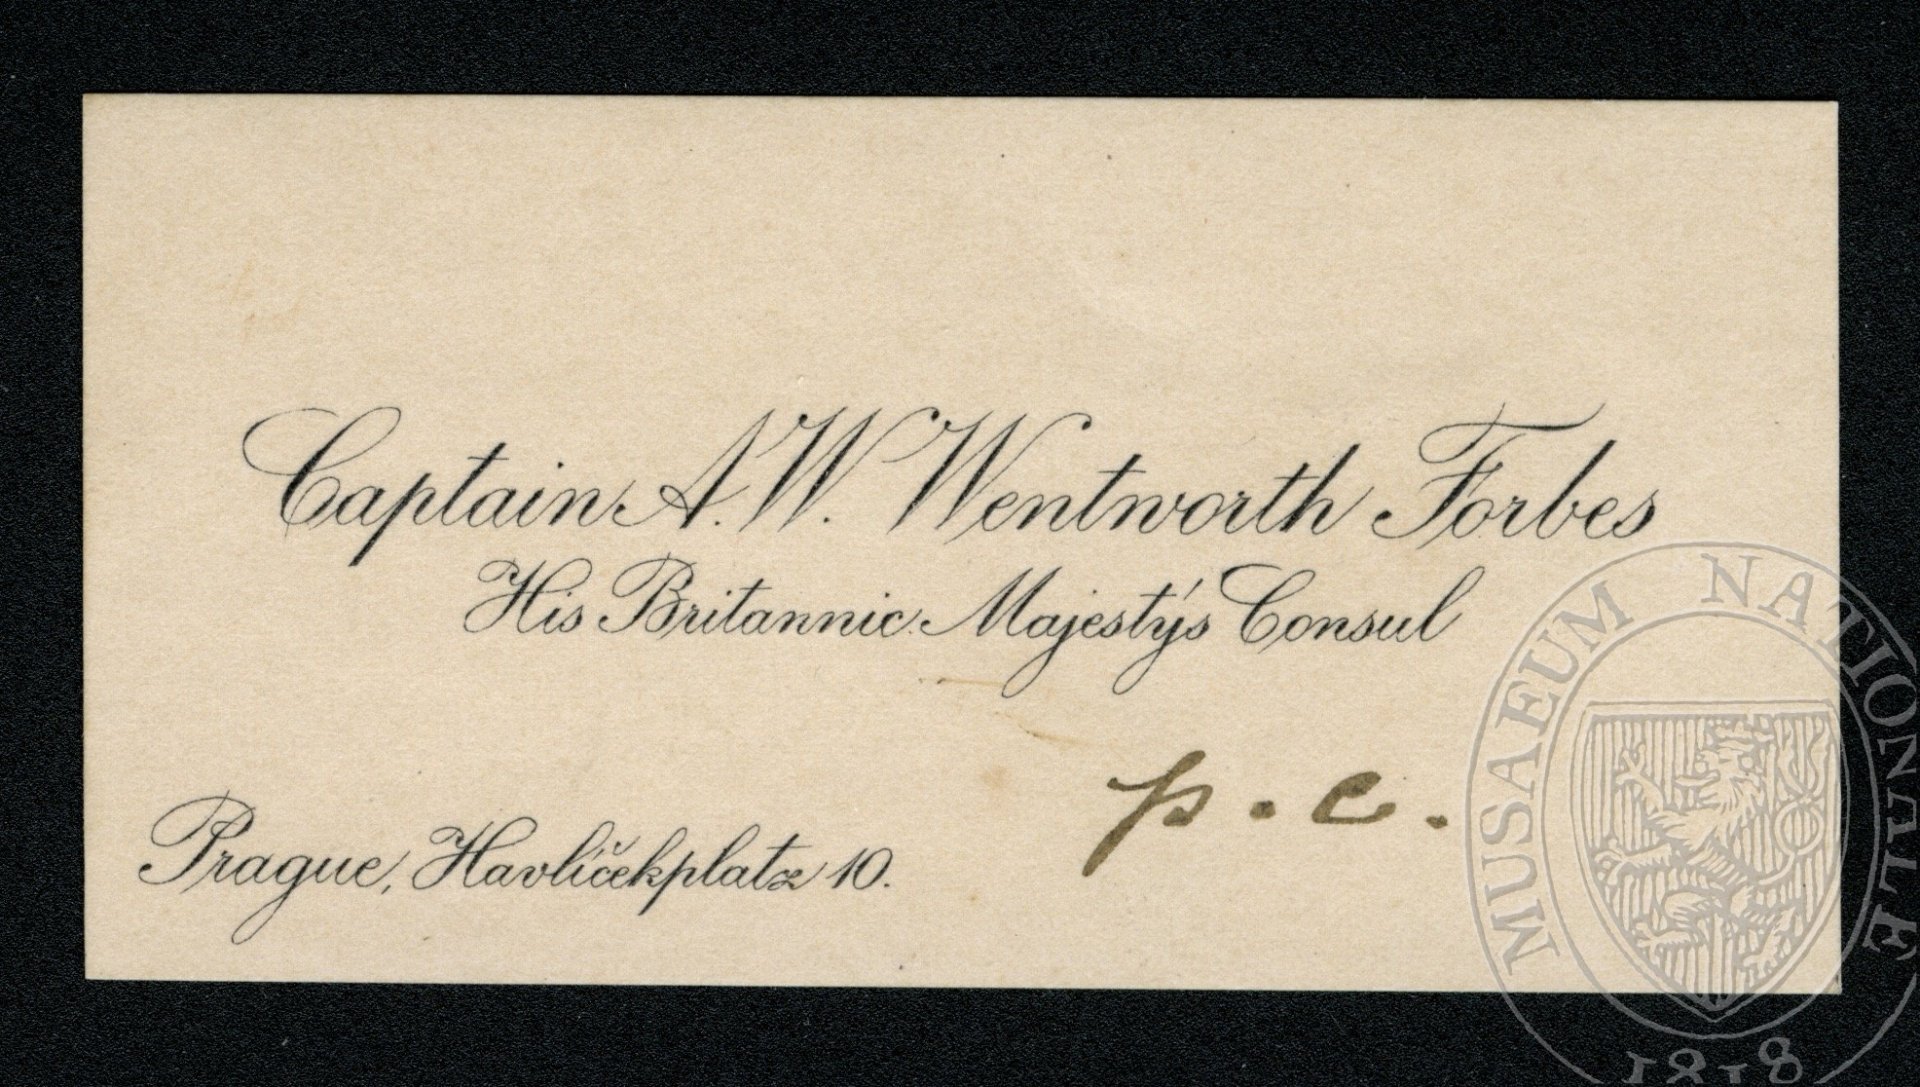 Captain A. W. Wentworth Forbes
His Britannic Majesty's Consul
p. c.
Prague, Havlíčekplatz 10.
MUSAEUM NATIONALE
1818